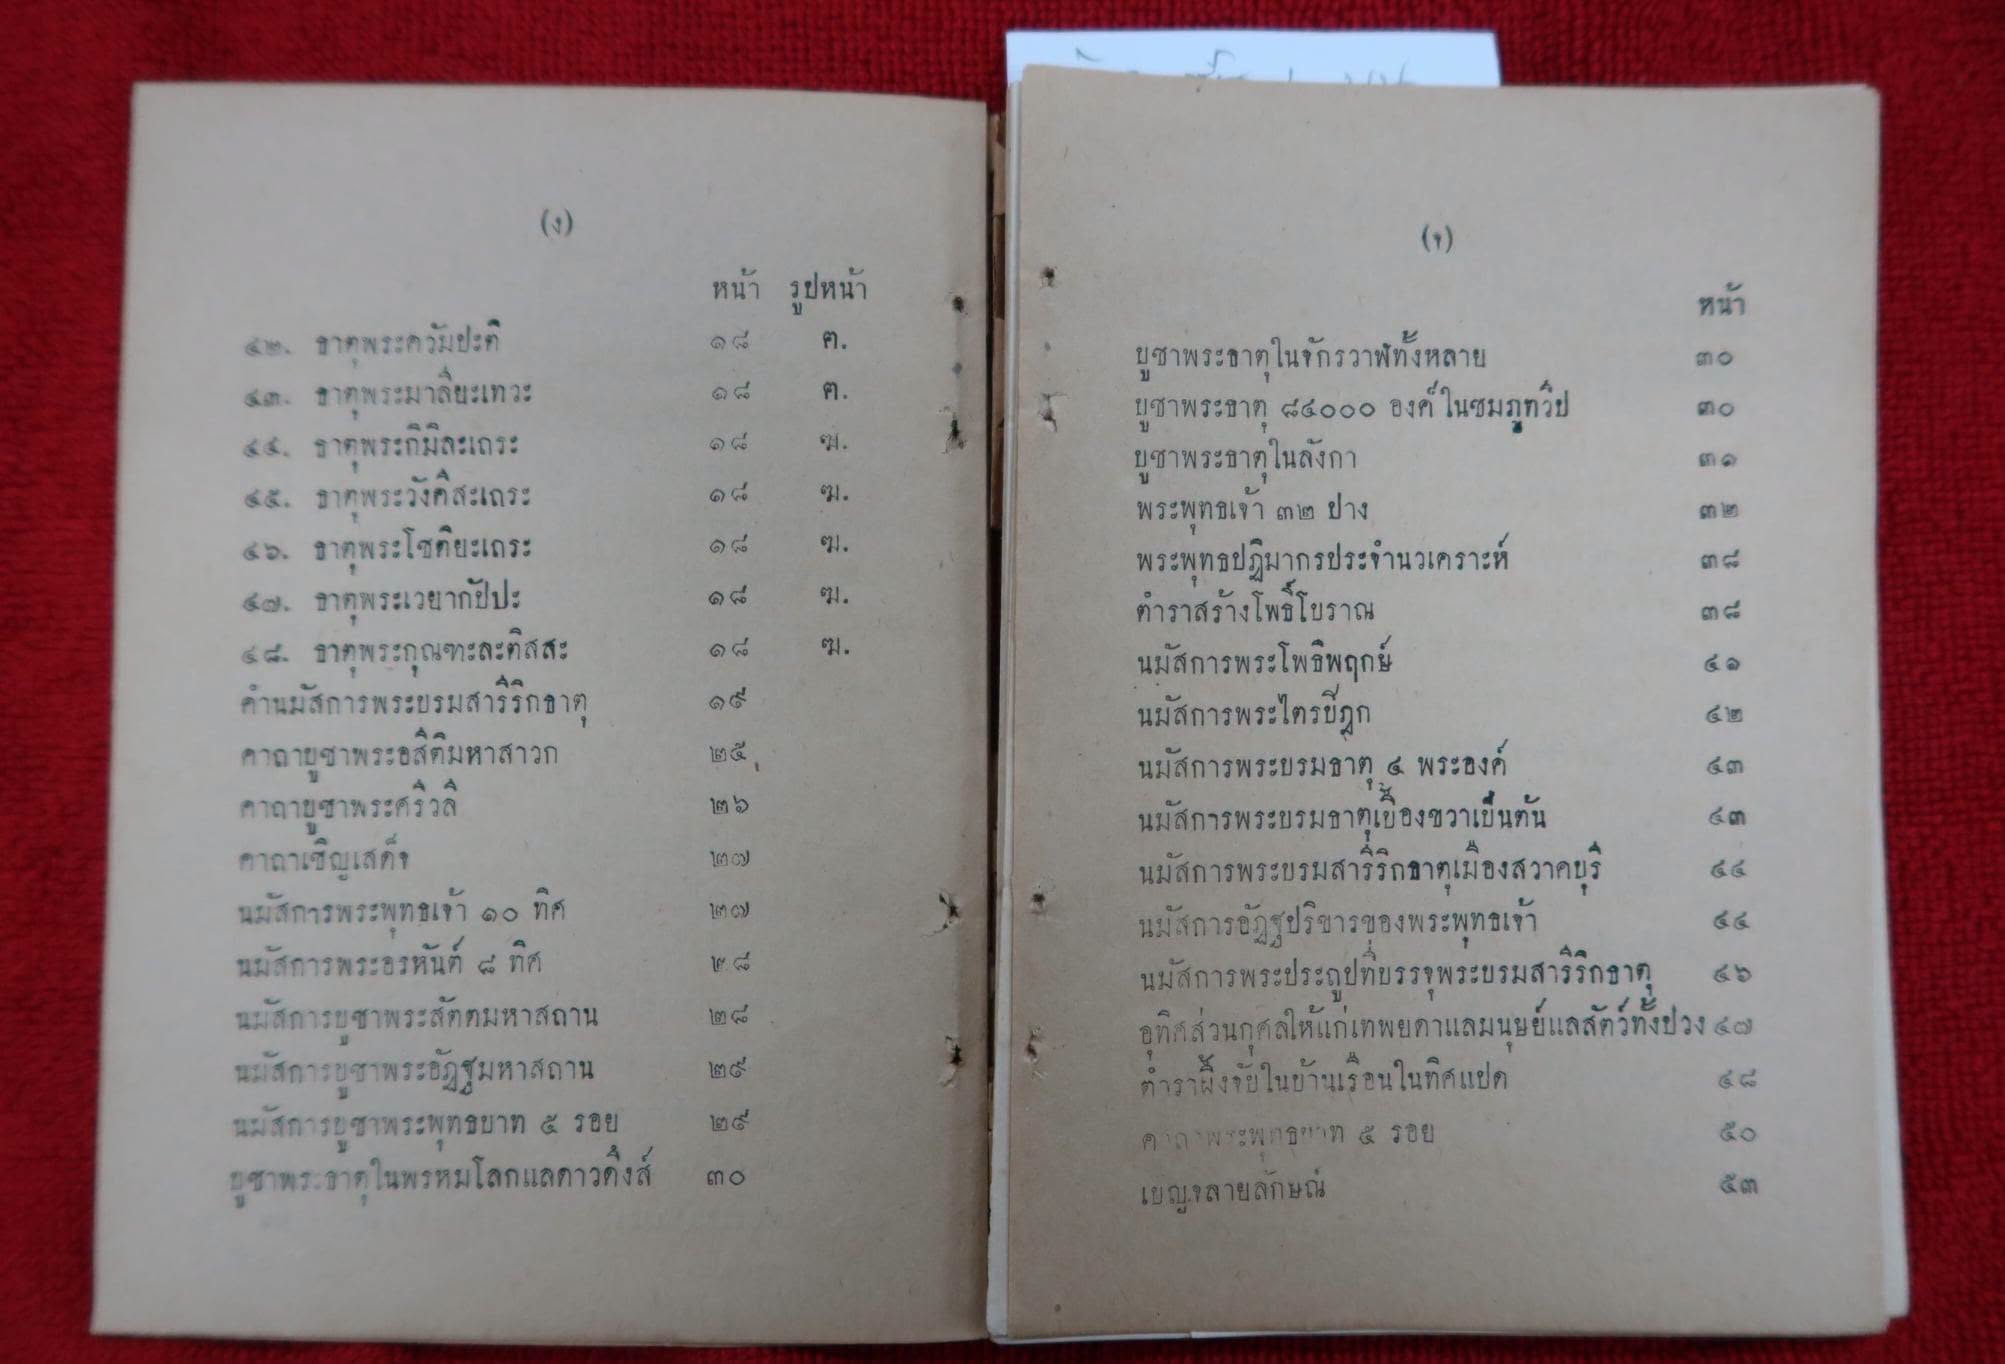 (ง)
หน้า รูปหน้า
๔๒. ธาตุพระควัมปะติ ๑๘ ฅ.
๔๓. ธาตุพระมาลิยะเทวะ ๑๘ ฅ.
๔๔. ธาตุพระกิมิละเถระ ๑๘ ฆ.
๔๕. ธาตุพระวังคิสะเถระ ๑๘ ฆ.
๔๖. ธาตุพระโชติยะเถระ ๑๘ ฆ.
๔๗. ธาตุพระเวยากัปปะ ๑๘ ฆ.
๔๘. ธาตุพระกุณฑะละติสสะ ๑๘ ฆ.
คำนมัสการพระบรมสารีริกธาตุ ๑๙
คาถาบูชาพระอสีติมหาสาวก ๒๕
คาถาบูชาพระศรีวลี ๒๖
คาถาเชิญเสด็จ ๒๗
นมัสการพระพุทธเจ้า ๑๐ ทิศ ๒๗
นมัสการพระอรหันต์ ๘ ทิศ ๒๘
นมัสการบูชาพระสัตตมหาสถาน ๒๘
นมัสการบูชาพระอัฏฐมหาสถาน ๒๙
นมัสการบูชาพระพุทธบาท ๕ รอย ๒๙
บูชาพระธาตุในพรหมโลกแลดาวดึงส์ ๓๐
(จ)
หน้า
บูชาพระธาตุในจักรวาฬทั้งหลาย ๓๐
บูชาพระธาตุ ๘๔๐๐๐ องค์ ในชมภูทวีป ๓๐
บูชาพระธาตุในลังกา ๓๑
พระพุทธเจ้า ๓๒ ปาง ๓๒
พระพุทธปฏิมากรประจำนวเคราะห์ ๓๘
ตำราสร้างโพธิ์โบราณ ๓๘
นมัสการพระโพธิพฤกษ์ ๔๑
นมัสการพระไตรปิฎก ๔๒
นมัสการพระบรมธาตุ ๔ พระองค์ ๔๓
นมัสการพระบรมธาตุเบื้องขวาเป็นต้น ๔๓
นมัสการพระบรมสารีริกธาตุเมืองสวาคบุรี ๔๔
นมัสการอัฏฐบริขารของพระพุทธเจ้า ๔๔
นมัสการพระประถูปที่บรรจุพระบรมสารีริกธาตุ ๔๖
อุทิศส่วนกุศลให้แก่เทพยดาแลมนุษย์แลสัตว์ทั้งปวง ๔๗
ตำราผึ้งจับในบ้านเรือนในทิศแปด ๔๘
คาถาพระพุทธบาท ๕ รอย ๕๐
เบญจลายลักษณ์ ๕๓